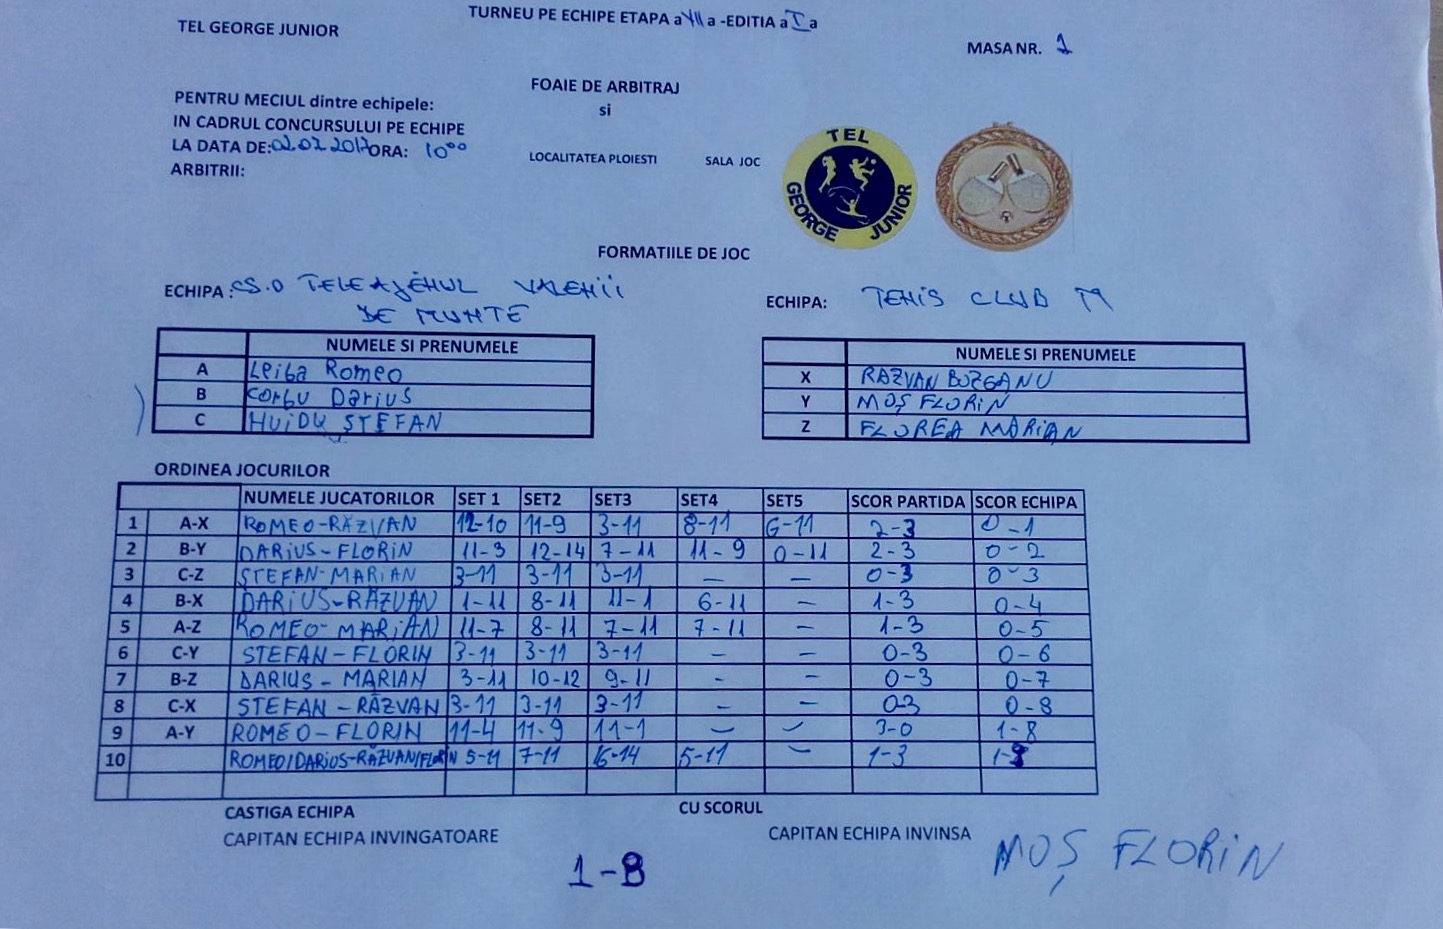 TEL GEORGE JUNIOR
TURNEU PE ECHIPE ETAPA a VII a -EDITIA a I a
MASA NR. 1
FOAIE DE ARBITRAJ
PENTRU MECIUL dintre echipele:
si
IN CADRUL CONCURSULUI PE ECHIPE
LA DATA DE: 02.07.2017 ORA: 10⁰⁰
LOCALITATEA PLOIESTI SALA JOC
ARBITRII:
TEL
GEORGE JUNIOR
FORMATIILE DE JOC
ECHIPA: CS.O TELEAJENUL VALENII
DE MUNTE
ECHIPA: TENIS CLUB M
NUMELE SI PRENUMELE
A Leiba Romeo
B Corbu Darius
C HUIDU ŞTEFAN
NUMELE SI PRENUMELE
X RAZVAN BOZEANU
Y MOŞ FLORIN
Z FLOREA MARIAN
ORDINEA JOCURILOR
NUMELE JUCATORILOR SET 1 SET2 SET3 SET4 SET5 SCOR PARTIDA SCOR ECHIPA
1 A-X ROMEO-RĂZVAN 12-10 11-9 3-11 8-11 6-11 2-3 0-1
2 B-Y DARIUS-FLORIN 11-3 12-14 7-11 11-9 0-11 2-3 0-2
3 C-Z ŞTEFAN-MARIAN 3-11 3-11 3-11 — — 0-3 0-3
4 B-X DARIUS-RĂZVAN 1-11 8-11 11-1 6-11 — 1-3 0-4
5 A-Z ROMEO-MARIAN 11-7 8-11 7-11 7-11 — 1-3 0-5
6 C-Y STEFAN-FLORIN 3-11 3-11 3-11 - - 0-3 0-6
7 B-Z DARIUS-MARIAN 3-11 10-12 9-11 - - 0-3 0-7
8 C-X STEFAN-RĂZVAN 3-11 3-11 3-11 - - 0-3 0-8
9 A-Y ROMEO-FLORIN 11-4 11-9 11-1 — — 3-0 1-8
10 ROMEO/DARIUS-RĂZVAN/FLORIN 5-11 7-11 16-14 5-11 — 1-3
CASTIGA ECHIPA CU SCORUL
CAPITAN ECHIPA INVINGATOARE CAPITAN ECHIPA INVINSA
1-8 MOŞ FLORIN